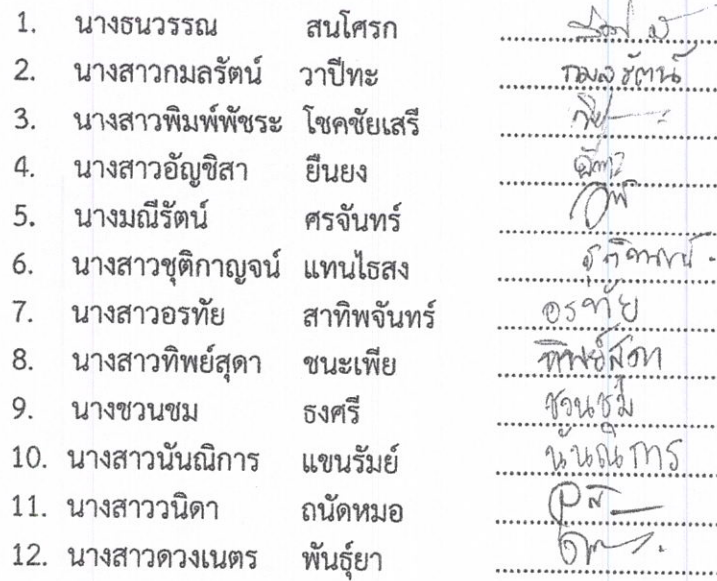 1. นางธนวรรณ สนโศรก
2. นางสาวกมลรัตน์ วาปีทะ กมลรัตน์
3. นางสาวพิมพ์พัชระ โชคชัยเสรี
4. นางสาวอัญชิสา ยืนยง
5. นางมณีรัตน์ ศรจันทร์
6. นางสาวชุติกาญจน์ แทนไธสง
7. นางสาวอรทัย สาทิพจันทร์ อรทัย
8. นางสาวทิพย์สุดา ชนะเพีย ทิพย์สุดา
9. นางชวนชม ธงศรี ชวนชม
10. นางสาวนันณิการ แขนรัมย์ นันณิการ
11. นางสาววนิดา ถนัดหมอ
12. นางสาวดวงเนตร พันธุ์ยา